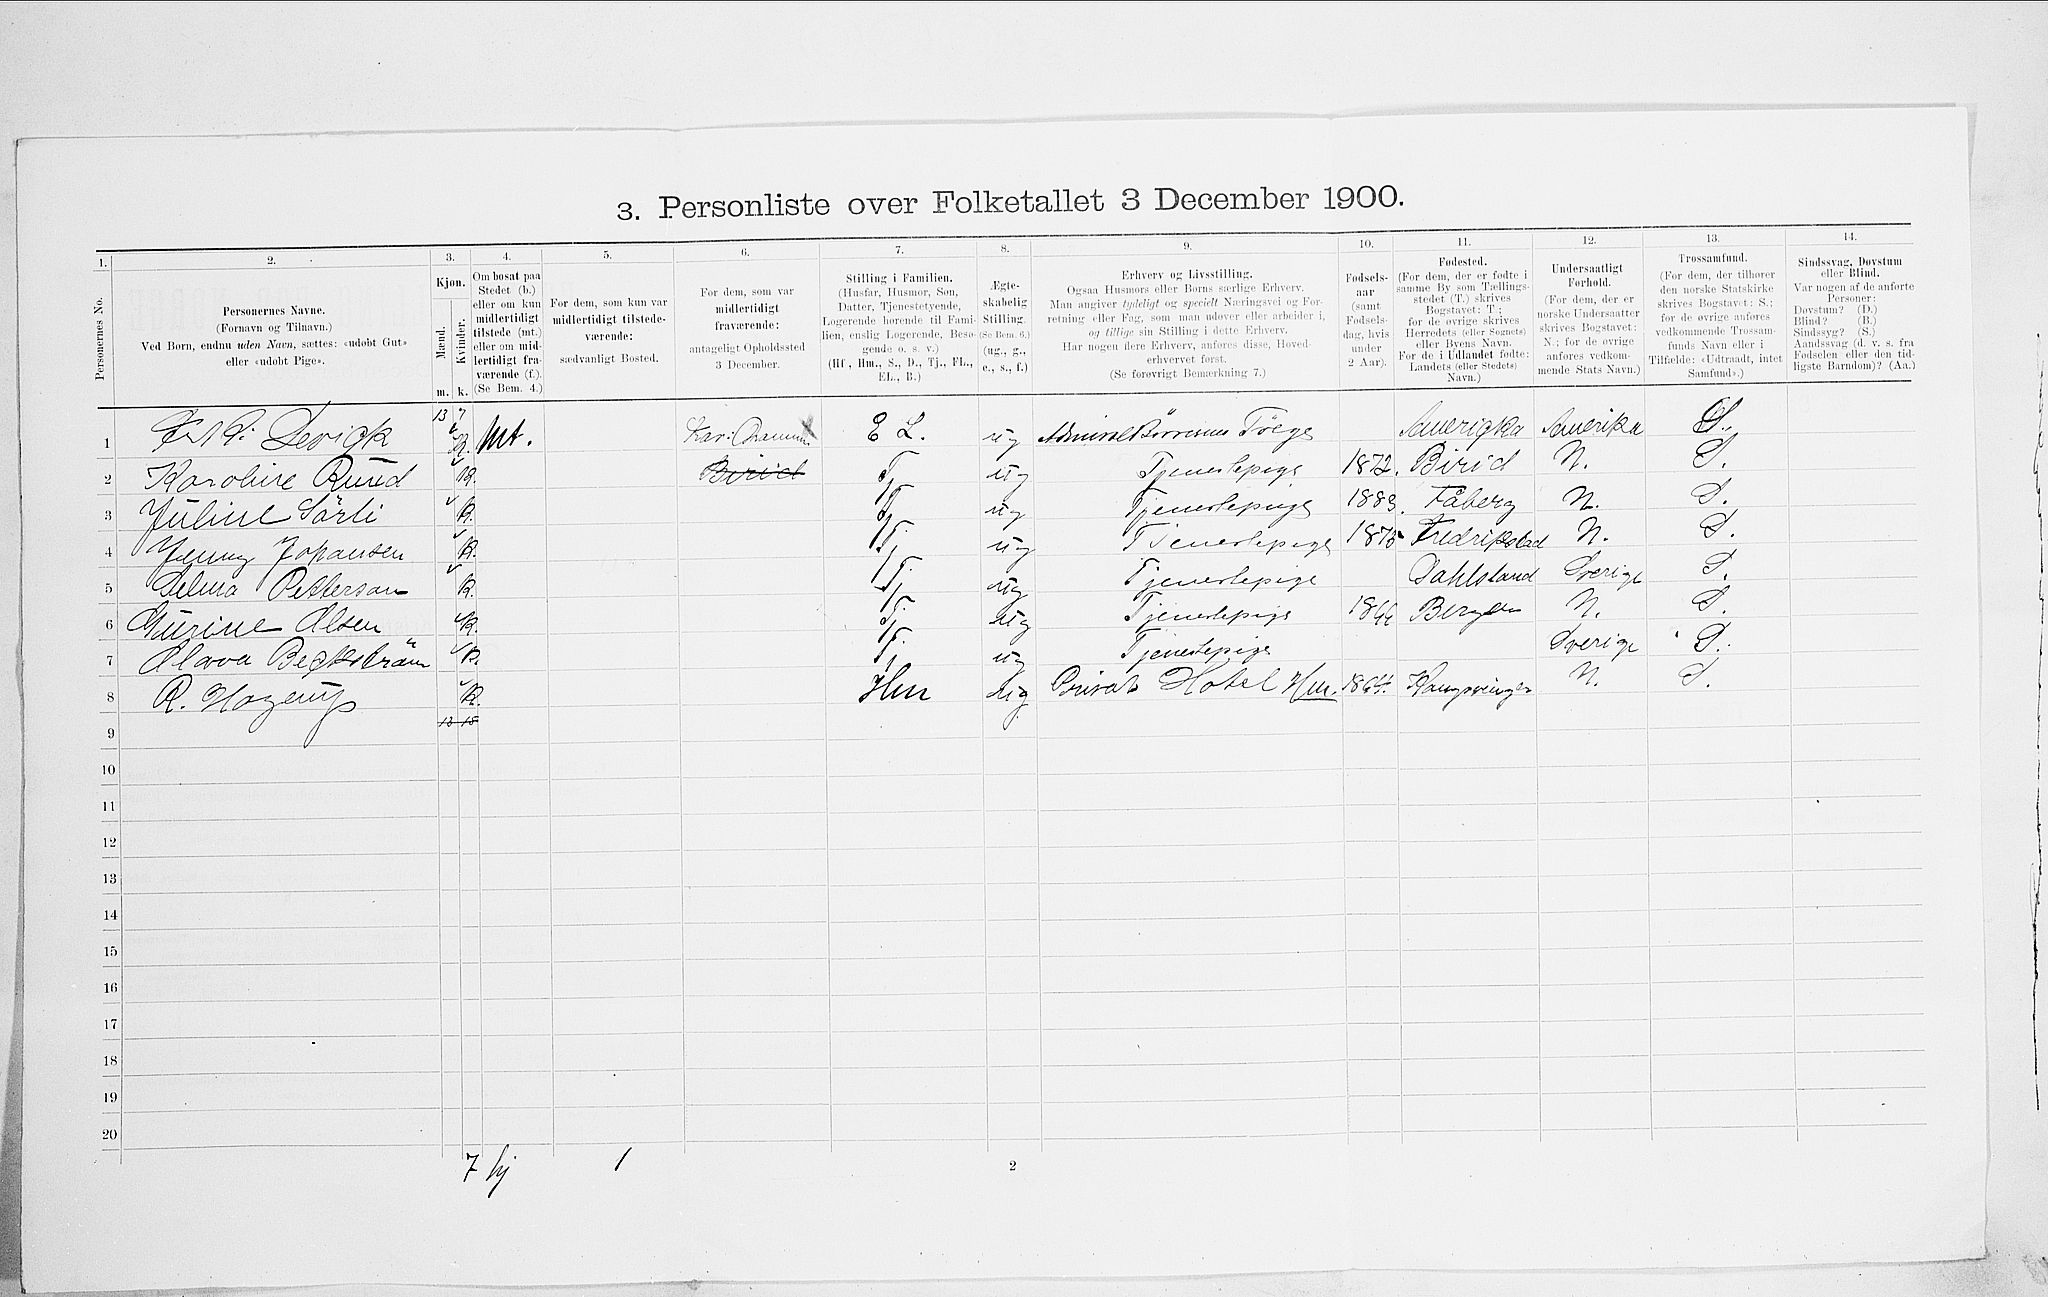 3. Personliste over Folketallet 3 December 1900.
1. 2. 3. 4. 5. 6. 7. 8. 9. 10. 11. 12. 13. 14.
Personernes No.
Personernes Navne.
(Fornavn og Tilnavn.)
Ved Børn, endnu uden Navn, sættes: «udøbt Gut»
eller «udøbt Pige».
Kjøn.
Mænd. Kvinder.
m. k.
Om bosat paa
Stedet (b.)
eller om kun
midlertidigt
tilstede (mt.)
eller om mid-
lertidigt fra-
værende (f.).
(Se Bem. 4.)
For dem, som kun var
midlertidigt tilstede-
værende:
sædvanligt Bosted.
For dem, som var
midlertidigt
fraværende:
antageligt Opholdssted
3 December.
Stilling i Familien.
(Husfar, Husmor, Søn,
Datter, Tjenestetyende,
Logerende hørende til Fami-
lien, enslig Logerende, Besø-
gende o. s. v.)
(Hf., Hm., S., D., Tj., FL.,
EL., B.)
Ægte-
skabelig
Stilling.
(Se Bem. 6.)
(ug., g.,
e., s., f.)
Erhverv og Livsstilling.
Ogsaa Husmors eller Børns særlige Erhverv.
Man angiver tydeligt og specielt Næringsvei og For-
retning eller Fag, som man udøver eller arbeider i,
og tillige sin Stilling i dette Erhverv.
Har nogen flere Erhverv, anføres disse, Hoved-
erhvervet først.
(Se forøvrigt Bemærkning 7.)
Fødsels-
aar
(samt
Fødsels-
dag, hvis
under
2 Aar).
Fødested.
(For dem, der er fødte i
samme By som Tællings-
stedet (T.) skrives
Bogstavet: T.;
for de øvrige skrives
Herredets (eller Sognets)
eller Byens Navn.
For de i Udlandet fødte:
Landets (eller Stedets)
Navn.)
Undersaatligt
Forhold.
(For dem, der er
norske Undersaatter
skrives Bogstavet:
N.; for de øvrige
anføres vedkom-
mende Stats Navn.)
Trossamfund.
(For dem, der tilhører
den norske Statskirke
skrives Bogstavet: S.;
for de øvrige anføres
vedkommende Trossam-
funds Navn eller i
Tilfælde: «Udtraadt, intet
Samfund».)
Sindssvag, Døvstum
eller Blind.
Var nogen af de anførte
Personer:
Døvstum? (D.)
Blind? (B.)
Sindssyg? (S.)
Aandssvag (d. v. s. fra
Fødselen eller den tid-
ligste Barndom)? (Aa.)
13 7
1 K. Mt. E L. ug Admiral Børresens Amerigka Amerika S.
2 Karoline Ruud K. Birid Tj. ug Tjenestepige 1872. Birid N. S.
3 Juline Sörli K. Tj. ug Tjenestepige 1883. Fåberg N. S.
4 Jenny Johansen K. Tj. ug Tjenestepige 1875 Fredrikstad N. S.
5 Selma Petterson K. Tj. ug Tjenestepige Dahlsland Sverige S.
6 Gurine Olsen K. Tj. ug Tjenestepige Bergen N. S.
7 K. Tj. ug Tjenestepige Sverige S.
8 R. Hagerup K. Hm ug Privat Hotel Hm. 1864. Kongsvinger N. S.
9
10
11
12
13
14
15
16
17
18
19
20
7 hj 1 2